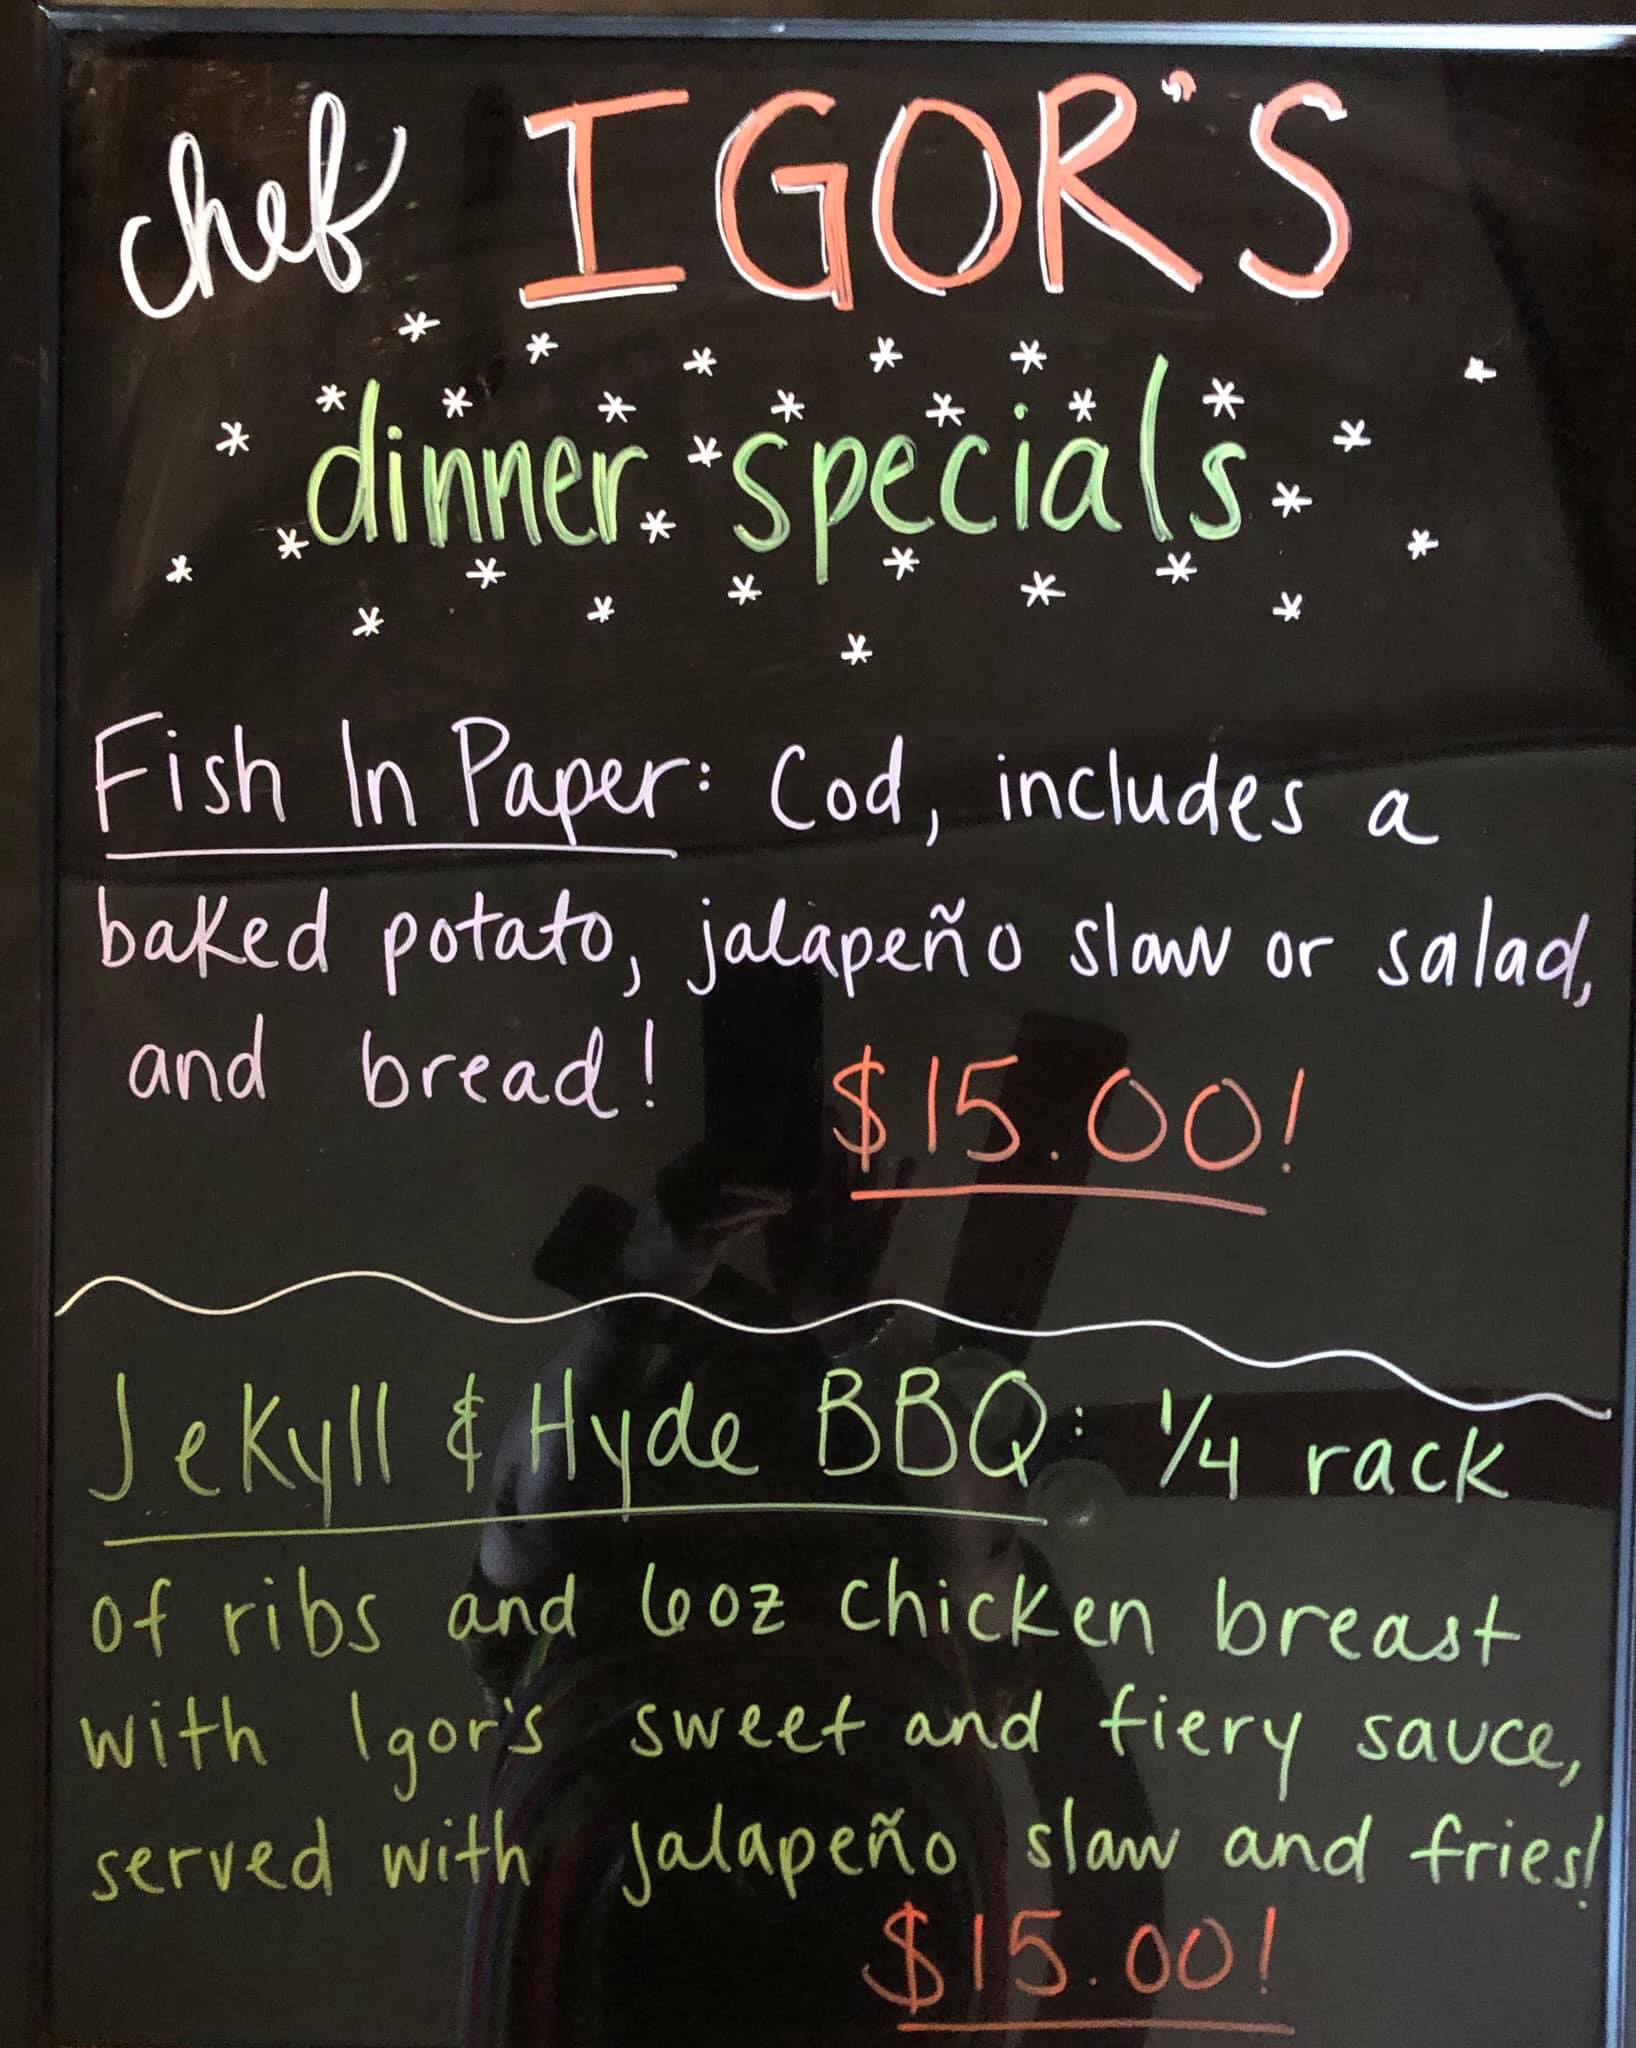 chef IGOR'S
dinner specials
Fish In Paper: Cod, includes a
baked potato, jalapeño slaw or salad,
and bread! $15.00!
Jekyll & Hyde BBQ: 1/4 rack
of ribs and 6oz chicken breast
with Igor's sweet and fiery sauce,
served with jalapeño slaw and fries!
$15.00!